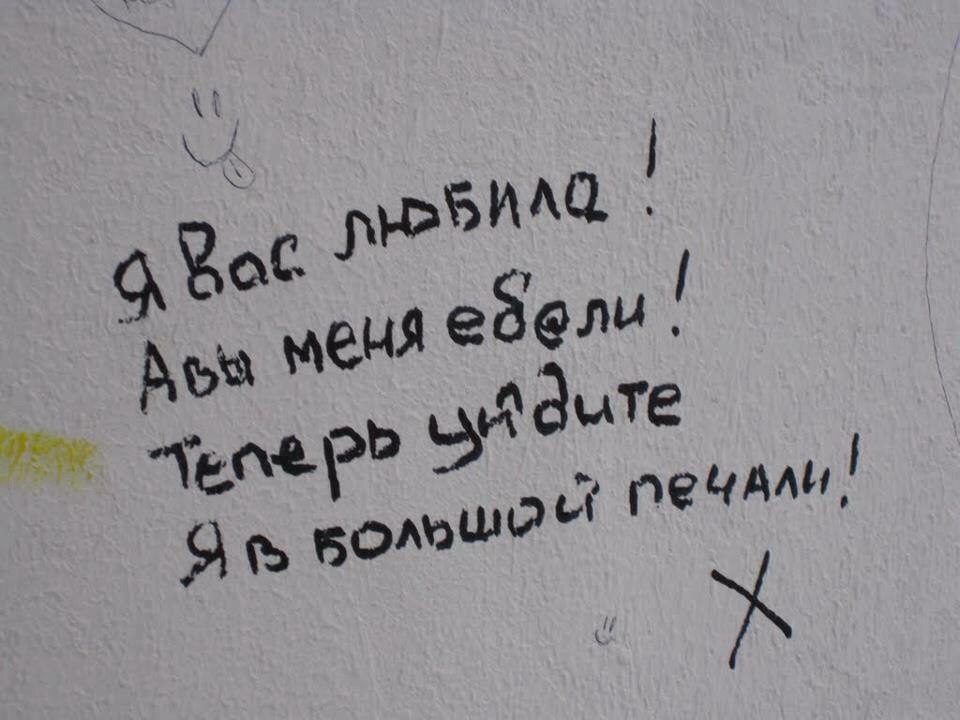 Я Вас любила!
А вы меня еб@ли!
Теперь уйдите
Я в большой печали!
X